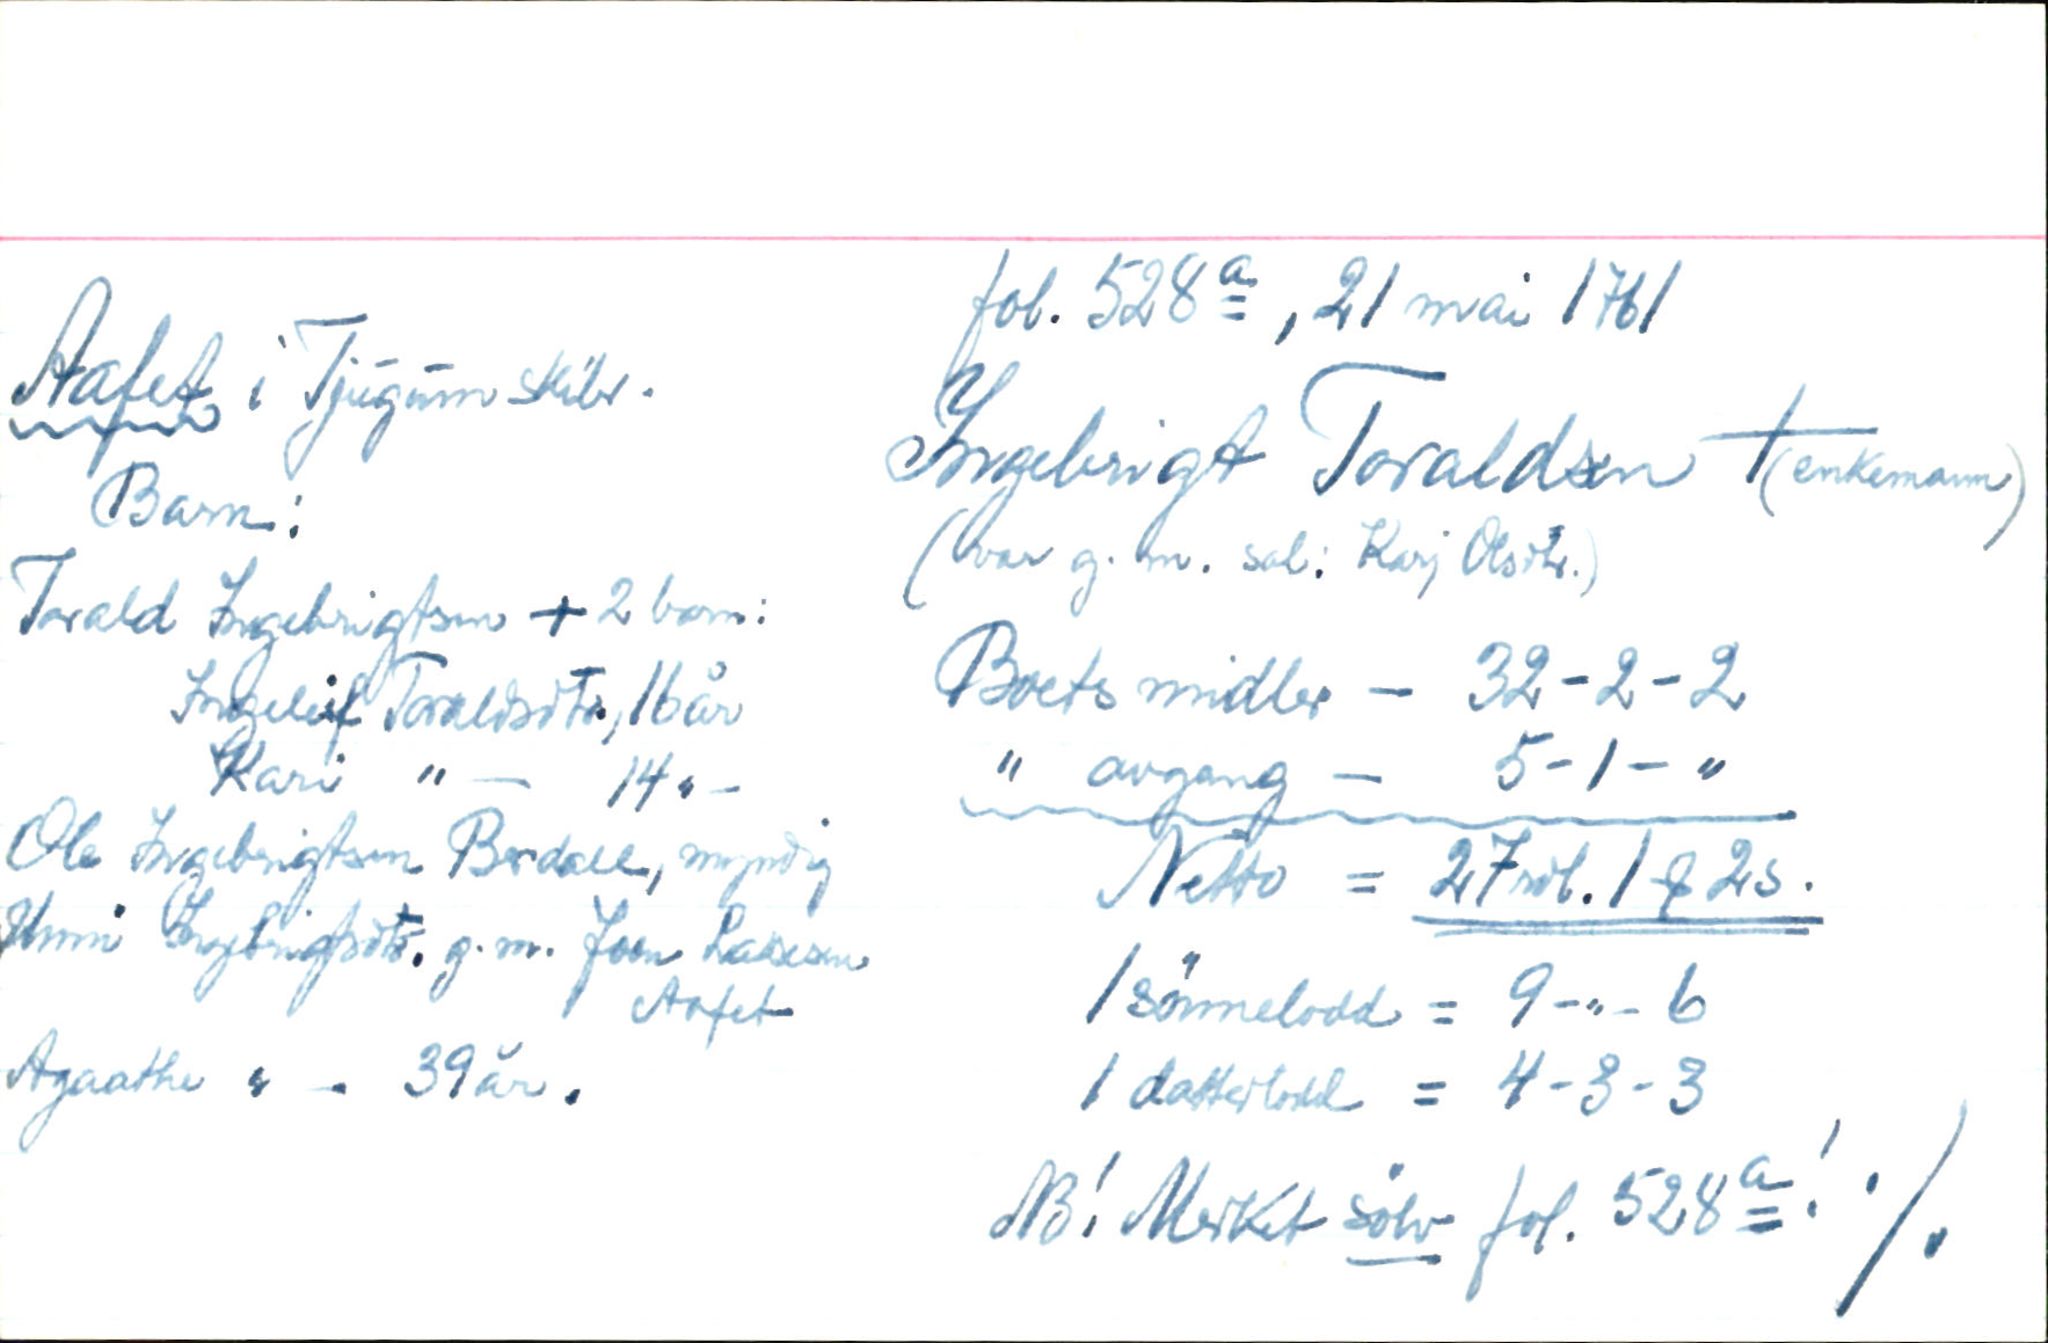 fol. 528a, 21 mai 1761
Aafet i Tjugum skibr.
Ingebrigt Toraldsen † (enkemann)
(var g. m. sal: Karj Olsdtr.)
Barn:
Torald Ingebrigtsen + 2 barn:
Ingeleif Toraldsdtr, 16 år
Kari " — 14 " -
Ole Ingebrigtsen Berdall, myndig
Unni Ingebrigtsdtr. g. m. Joen Lassesen
Aafet
Agaathe " - 39 år.
Boets midler - 32-2-2
" avgang - 5-1-"
Netto = 27 rdl. 1 2 s.
1 sönnelodd = 9-"-6
1 datterlodd = 4-3-3
NB! Merket sölv fol. 528a! ./.